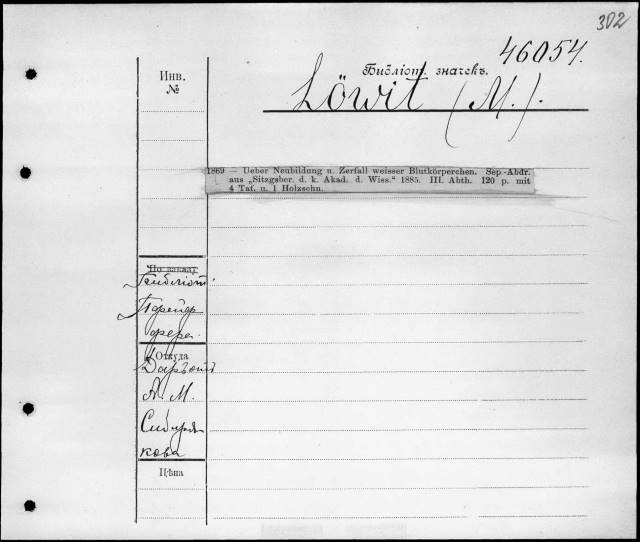 302
46054.
Библіот. значекъ.
Инв.
№
Löwit (M.).
1869 — Ueber Neubildung u. Zerfall weisser Blutkörperchen. Sep.-Abdr.
aus „Sitzgsber. d. k. Akad. d. Wiss.“ 1885. III. Abth. 120 p. mit
4 Taf. u. 1 Holzschn.
По заказу
Библіот.
Пфейф
фера.
Откуда
Даръ отъ
А. М.
Сибиря
кова
Цѣна